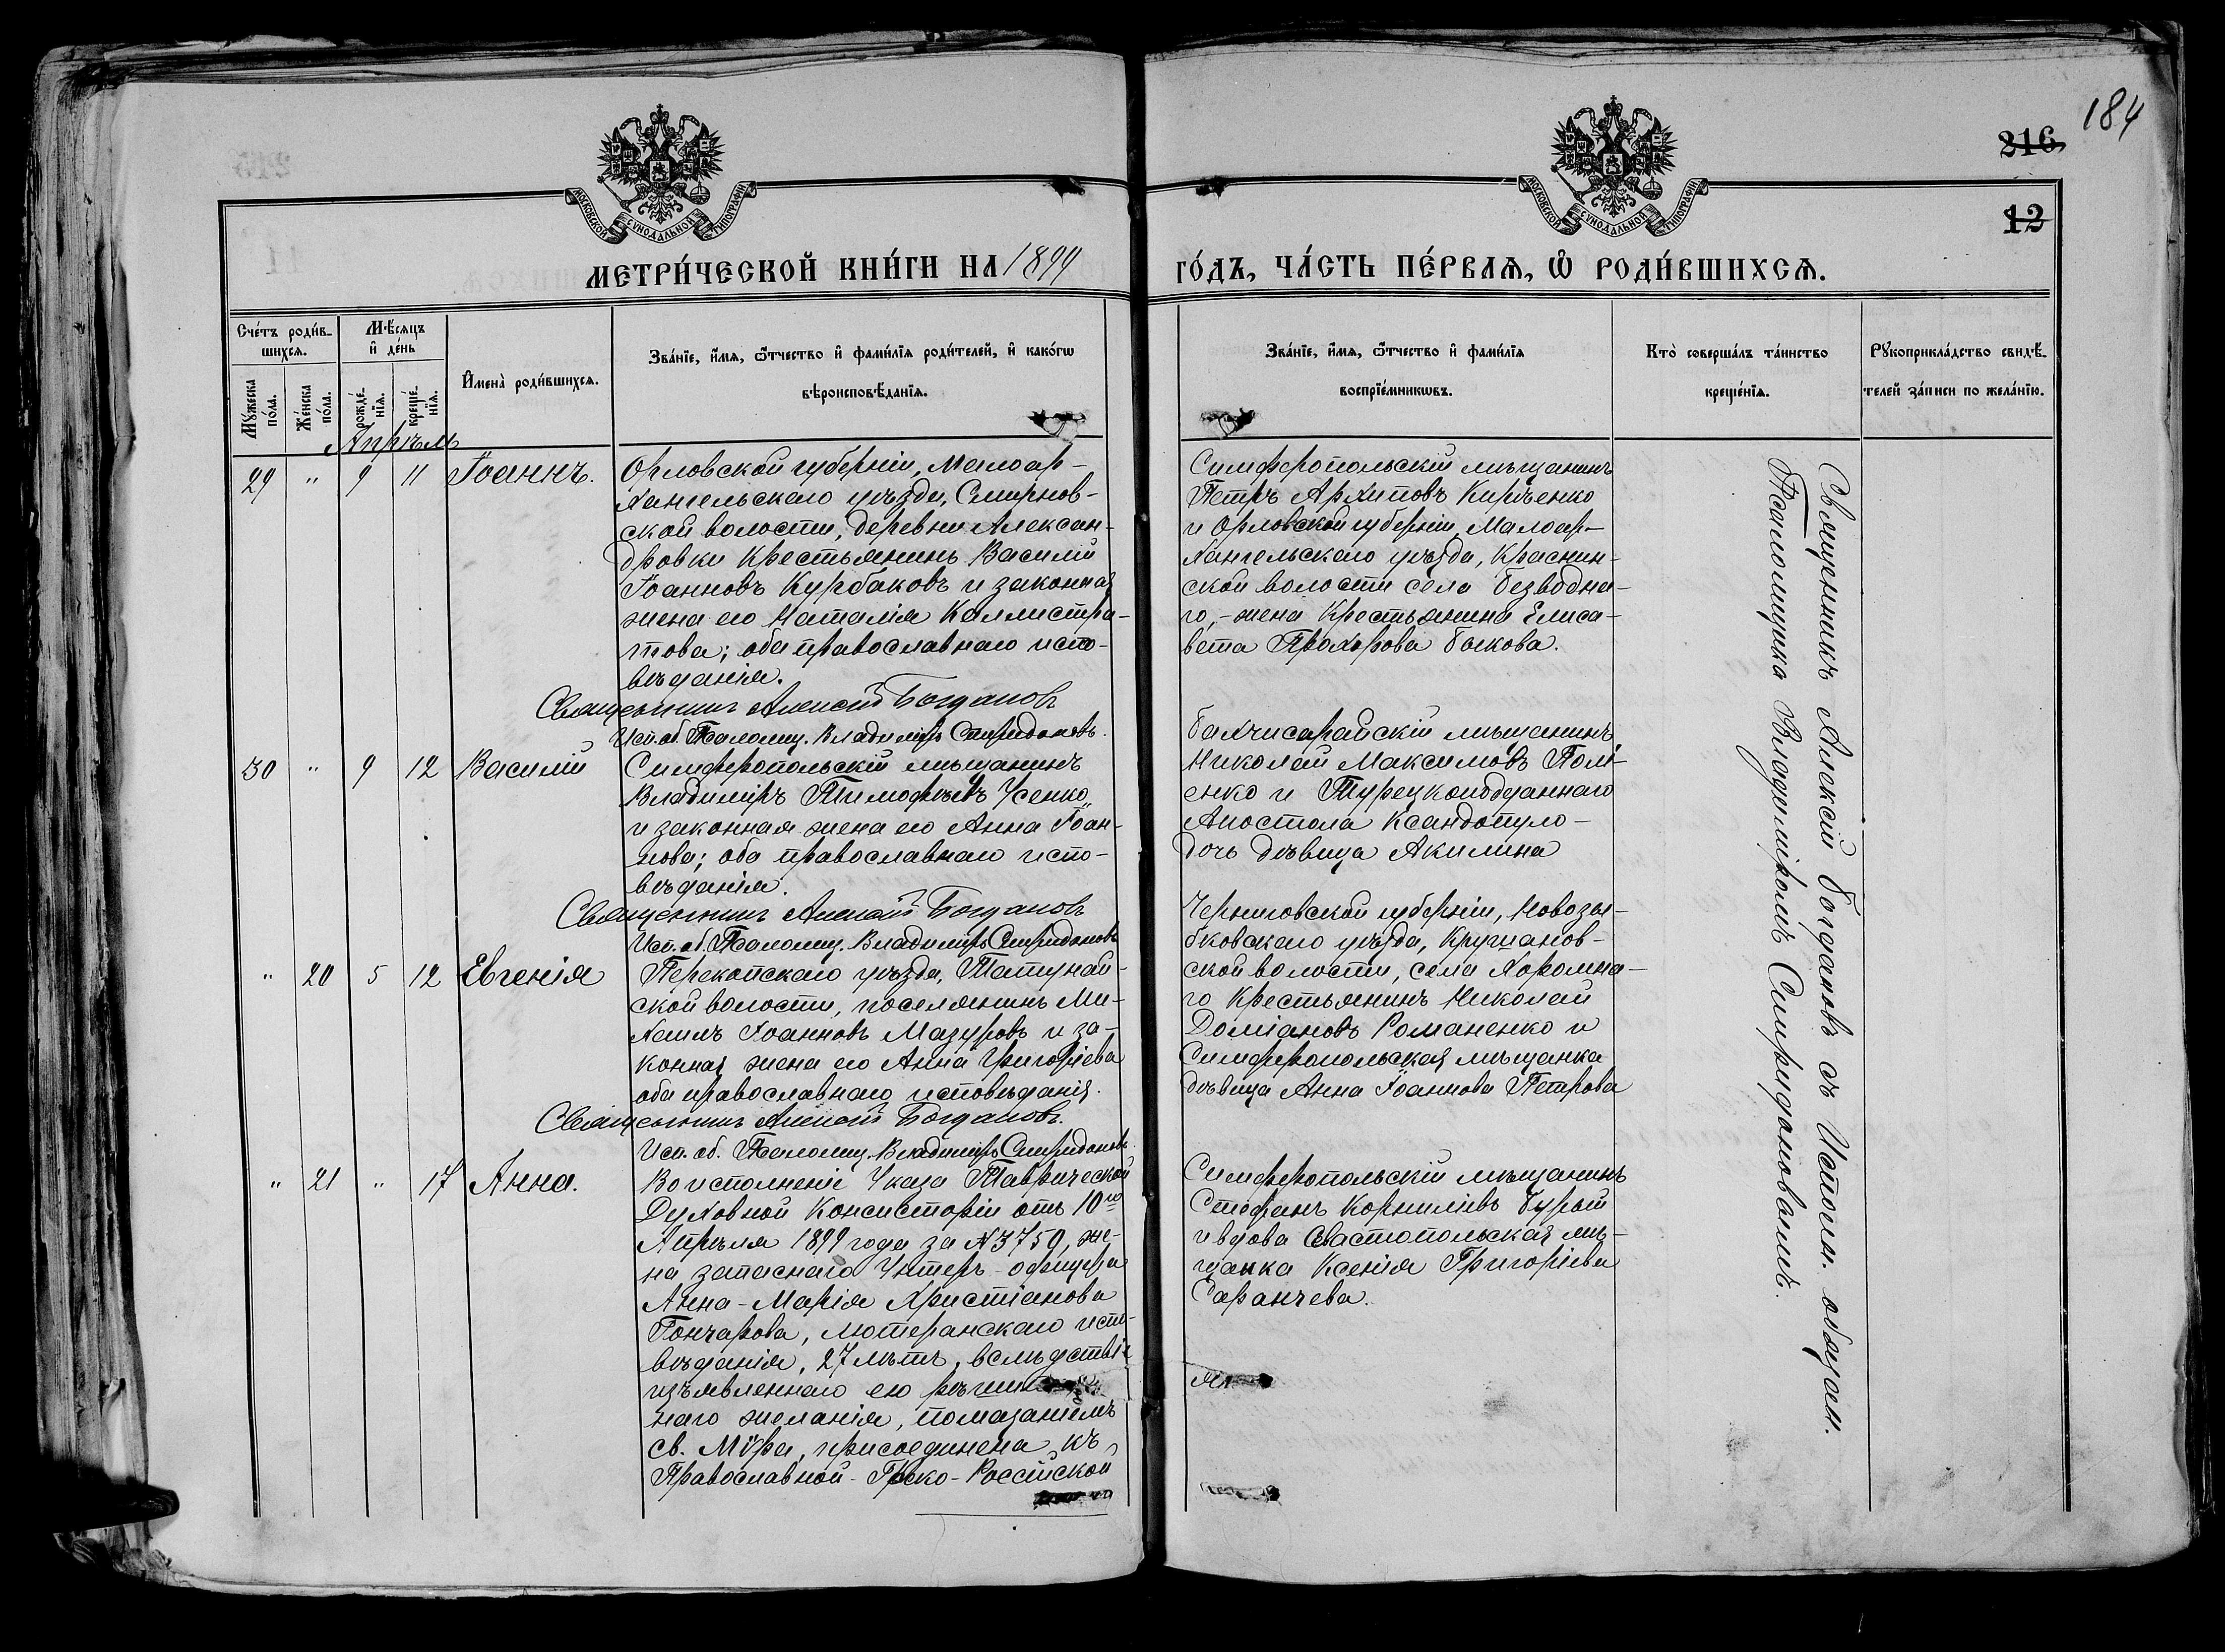 184
216
12
МОСКОВСКОЙ СУНОДАЛЬНОЙ ТИПОГРАФІИ
МОСКОВСКОЙ СУНОДАЛЬНОЙ ТИПОГРАФІИ
МЕТРИ́ЧЕСКОЙ КНИ́ГИ НА 1899
ГО́ДЪ, ЧА́СТЬ ПЕ́РВАѦ, Ѡ РОДИ́ВШИХСѦ.
Сче́тъ роди́в-
шихсѧ.
Мꙋ́жеска по́ла.
Же́нска по́ла.
Мѣ́сѧцъ
и҆ де́нь
рожде́-
нїѧ.
креще́-
нїѧ.
И҆мена̀ роди́вшихсѧ.
Зва́нїе, и҆́мѧ, ѻ҆́тчество и҆ фами́лїѧ роди́телей, и҆ како́гѡ
вѣроисповѣ́данїѧ.
Зва́нїе, и҆́мѧ, ѻ҆́тчество и҆ фами́лїѧ
воспрїе́мникѡвъ.
Кто̀ соверша́лъ та́инство
креще́нїѧ.
Рꙋкоприкла́дство свидѣ́-
телей за́писи по жела́нїю.
Апрѣль
29 " 9 11 Іоаннъ.
Орловской губерніи, Малоар-
хангельскаго уѣзда, Смирнов-
ской волости, деревни Алексан-
дровки крестьянинъ Василій
Іоанновъ Курбаковъ и законная
жена его Наталія Каллистра-
това; оба православнаго испо-
вѣданія.
Священникъ Алексій Богданов
Исп. об. Псаломщ. Владиміръ Спиридоновъ.
Симферопольскій мѣщанинъ
Петръ Архиповъ Кириченко
и Орловской губерніи, Малоар-
хангельскаго уѣзда, Краснин-
ской волости села Безводна-
го, - жена крестьянина Елиса-
вета Прохорова Быкова.
30 " 9 12 Василій
Симферопольскій мѣщанинъ
Владиміръ Тимофѣевъ Усенко
и законная жена его Анна Іоан-
нова; оба православнаго испо-
вѣданія.
Священникъ Алексій Богданов
Исп. об. Псаломщ. Владиміръ Спиридоновъ
Бахчисарайскій мѣщанинъ
Николай Максимовъ Полі-
енко и Турецкоподданнаго
Апостола Ксандопуло -
дочь дѣвица Акилина
" 20 5 12 Евгенія
Перекопскаго уѣзда,
ской волости, поселянинъ Ми-
хаилъ Іоанновъ Мазуровъ и за-
конная жена его Анна Григоріева
оба православнаго исповѣданія.
Священникъ Алексій Богданов.
Исп. об. Псаломщ. Владиміръ Спиридоновъ.
Черниговской губерніи, Новозы-
бковскаго уѣзда,
ской волости, села Хоромна-
го крестьянинъ Николай
Доміановъ Романенко и
Симферопольская мѣщанка
дѣвица Анна Іоаннова Петрова
" 21 " 17 Анна.
Во исполненіе Указа Таврической
Духовной Консисторіи отъ 10го
Апрѣля 1899 года за № 3759, же-
на запаснаго Унтеръ-офицера
Анна-Марія Христіанова
Гончарова, лютеранскаго испо-
вѣданія, 27 лѣтъ, вслѣдствіе
изъявленнаго ею
наго желанія, помазаніемъ
св. Мѵра, присоединена къ
Православной-Греко-Россійской
Симферопольскій мѣщанинъ
Стефанъ Корниліевъ Бурый
и вдова Севастопольская мѣ-
щанка Ксенія Григоріева
Саранчева.
Священникъ Алексій Богдановъ съ Исполн. обязан.
Псаломщика Владиміромъ Спиридоновымъ.